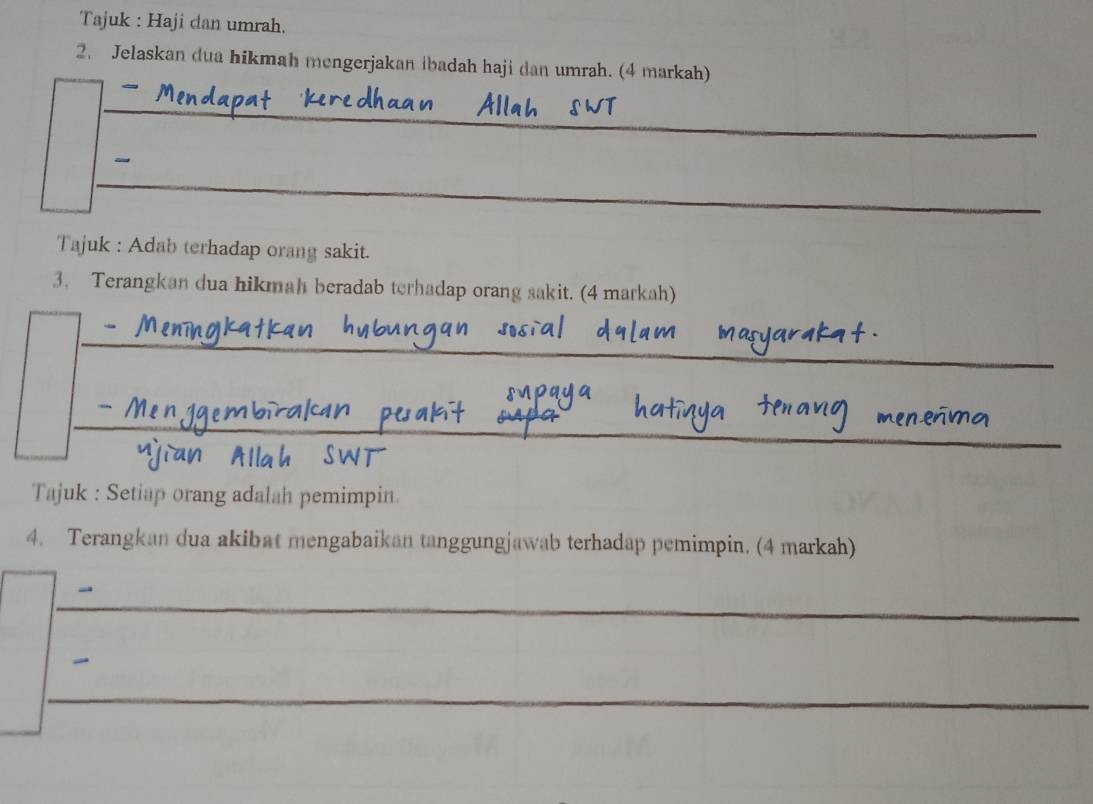 Tajuk : Haji dan umrah.
2. Jelaskan dua hikmah mengerjakan ibadah haji dan umrah. (4 markah)
- Mendapat keredhaan Allah SWT
-
Tajuk : Adab terhadap orang sakit.
3. Terangkan dua hikmah beradab terhadap orang sakit. (4 markah)
- Meningkatkan hubungan sosial dalam masyarakat.
- Menggembirakan pesakit supaya hatinya tenang menerima
ujian Allah SWT
Tajuk : Setiap orang adalah pemimpin.
4. Terangkan dua akibat mengabaikan tanggungjawab terhadap pemimpin. (4 markah)
-
-